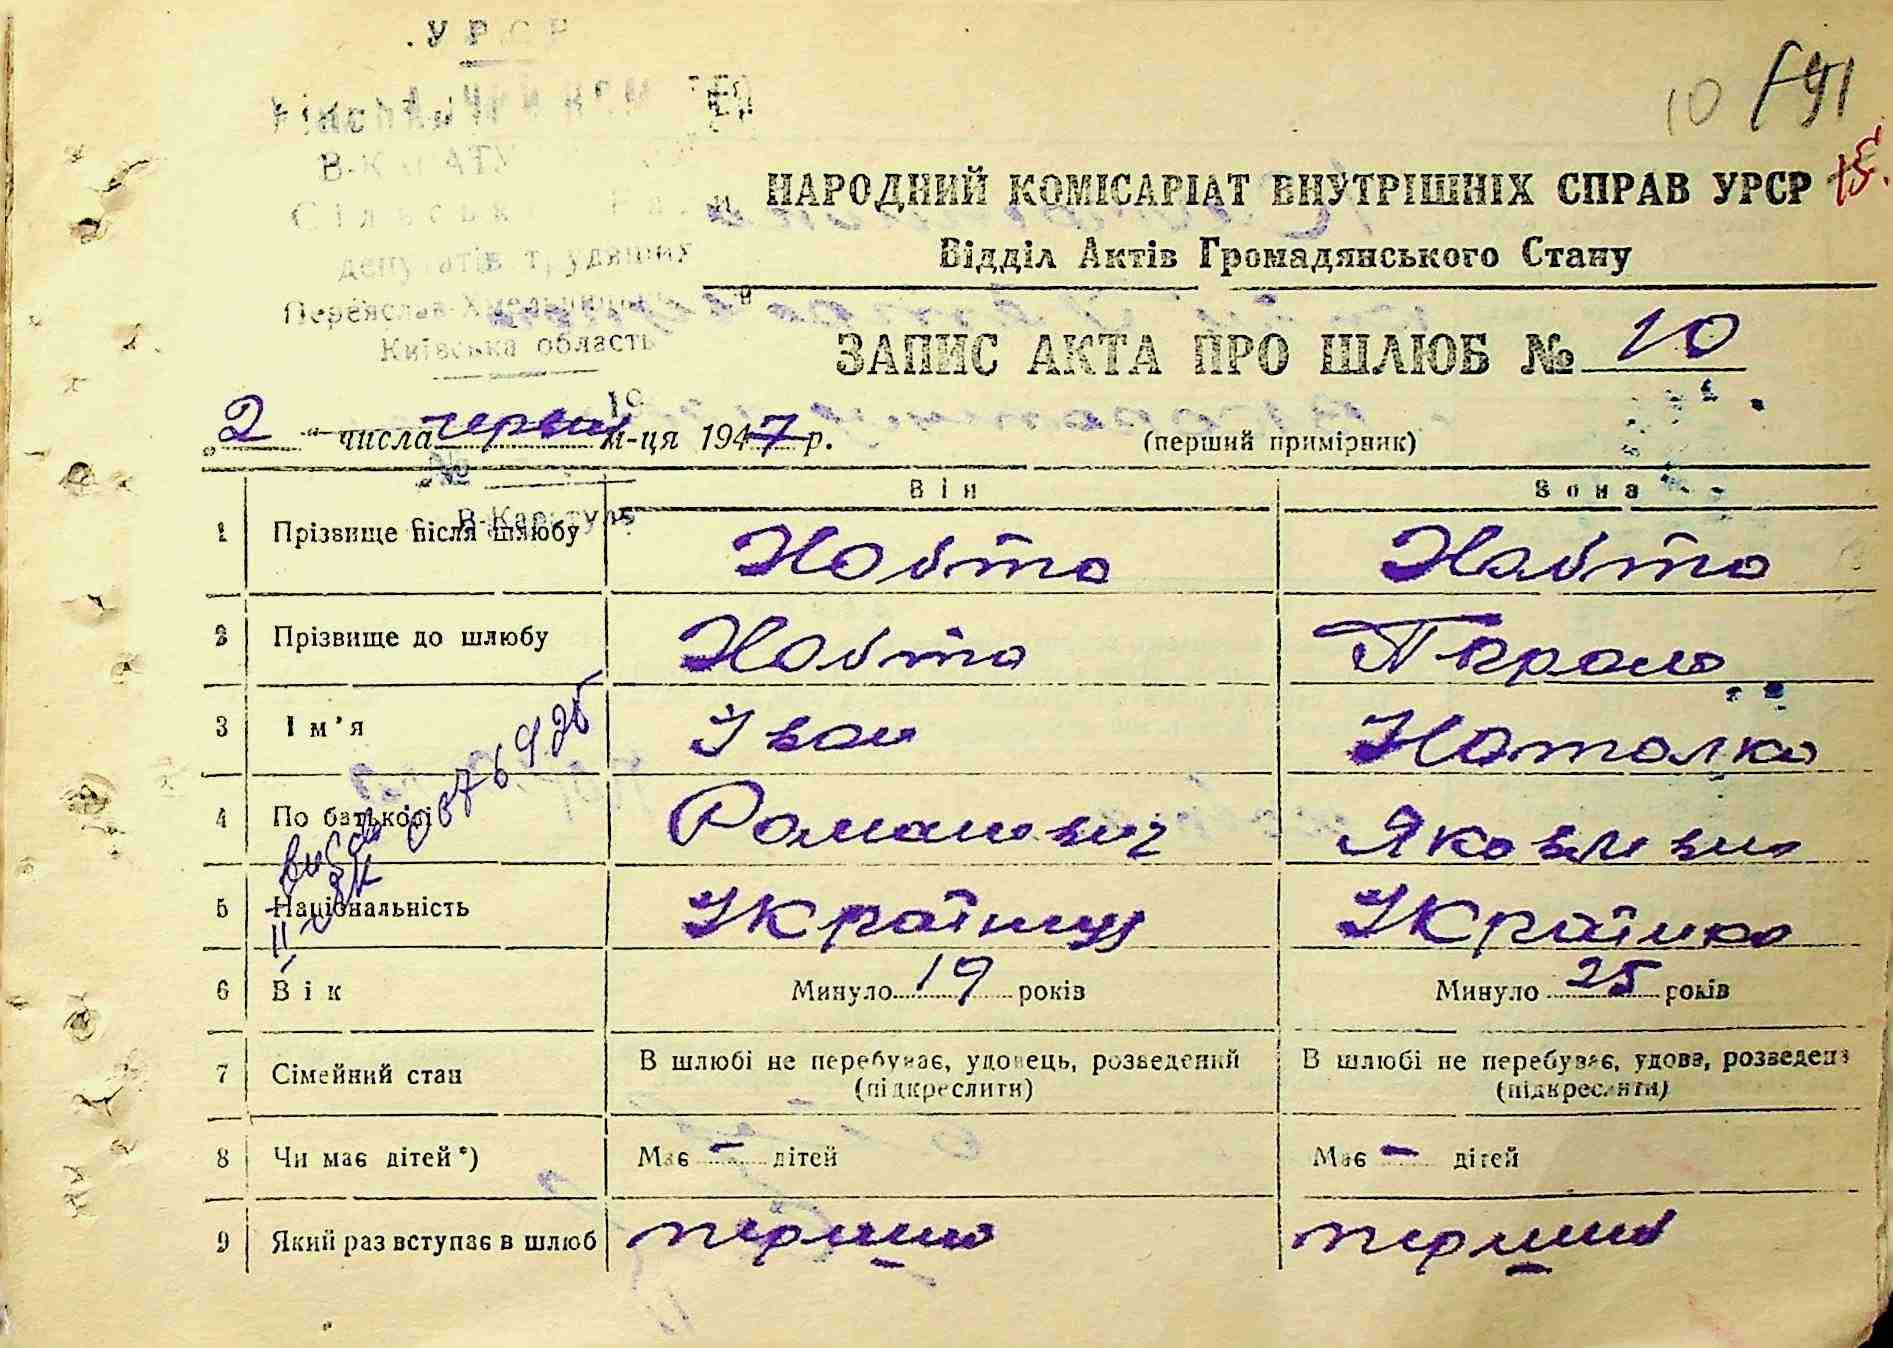 УРСР
В-К АТУ
Сільськ Рад
депутатів трудящих
Переяслав-Хмельницьк
Київська область
19
№
В-Каратуль
10
15.
НАРОДНИЙ КОМІСАРІАТ ВНУТРІШНІХ СПРАВ УРСР
Відділ Актів Громадянського Стану
ЗАПИС АКТА ПРО ШЛЮБ № 10
„2“ числа червня м-ця 1947 р.
(перший примірник)
Він Вона
1 Прізвище після шлюбу Набта Набта
2 Прізвище до шлюбу Набта
3 Ім'я Іван Наталка
4 По батькові Романович Яковлевна
5 Національність Українець Українка
6 Вік Минуло 19 років Минуло 25 років
7 Сімейний стан В шлюбі не перебуває, удовець, розведений (підкреслити) В шлюбі не перебуває, удова, розведена (підкреслити)
8 Чи має дітей*) Має – дітей Має – дітей
9 Який раз вступає в шлюб перший перший